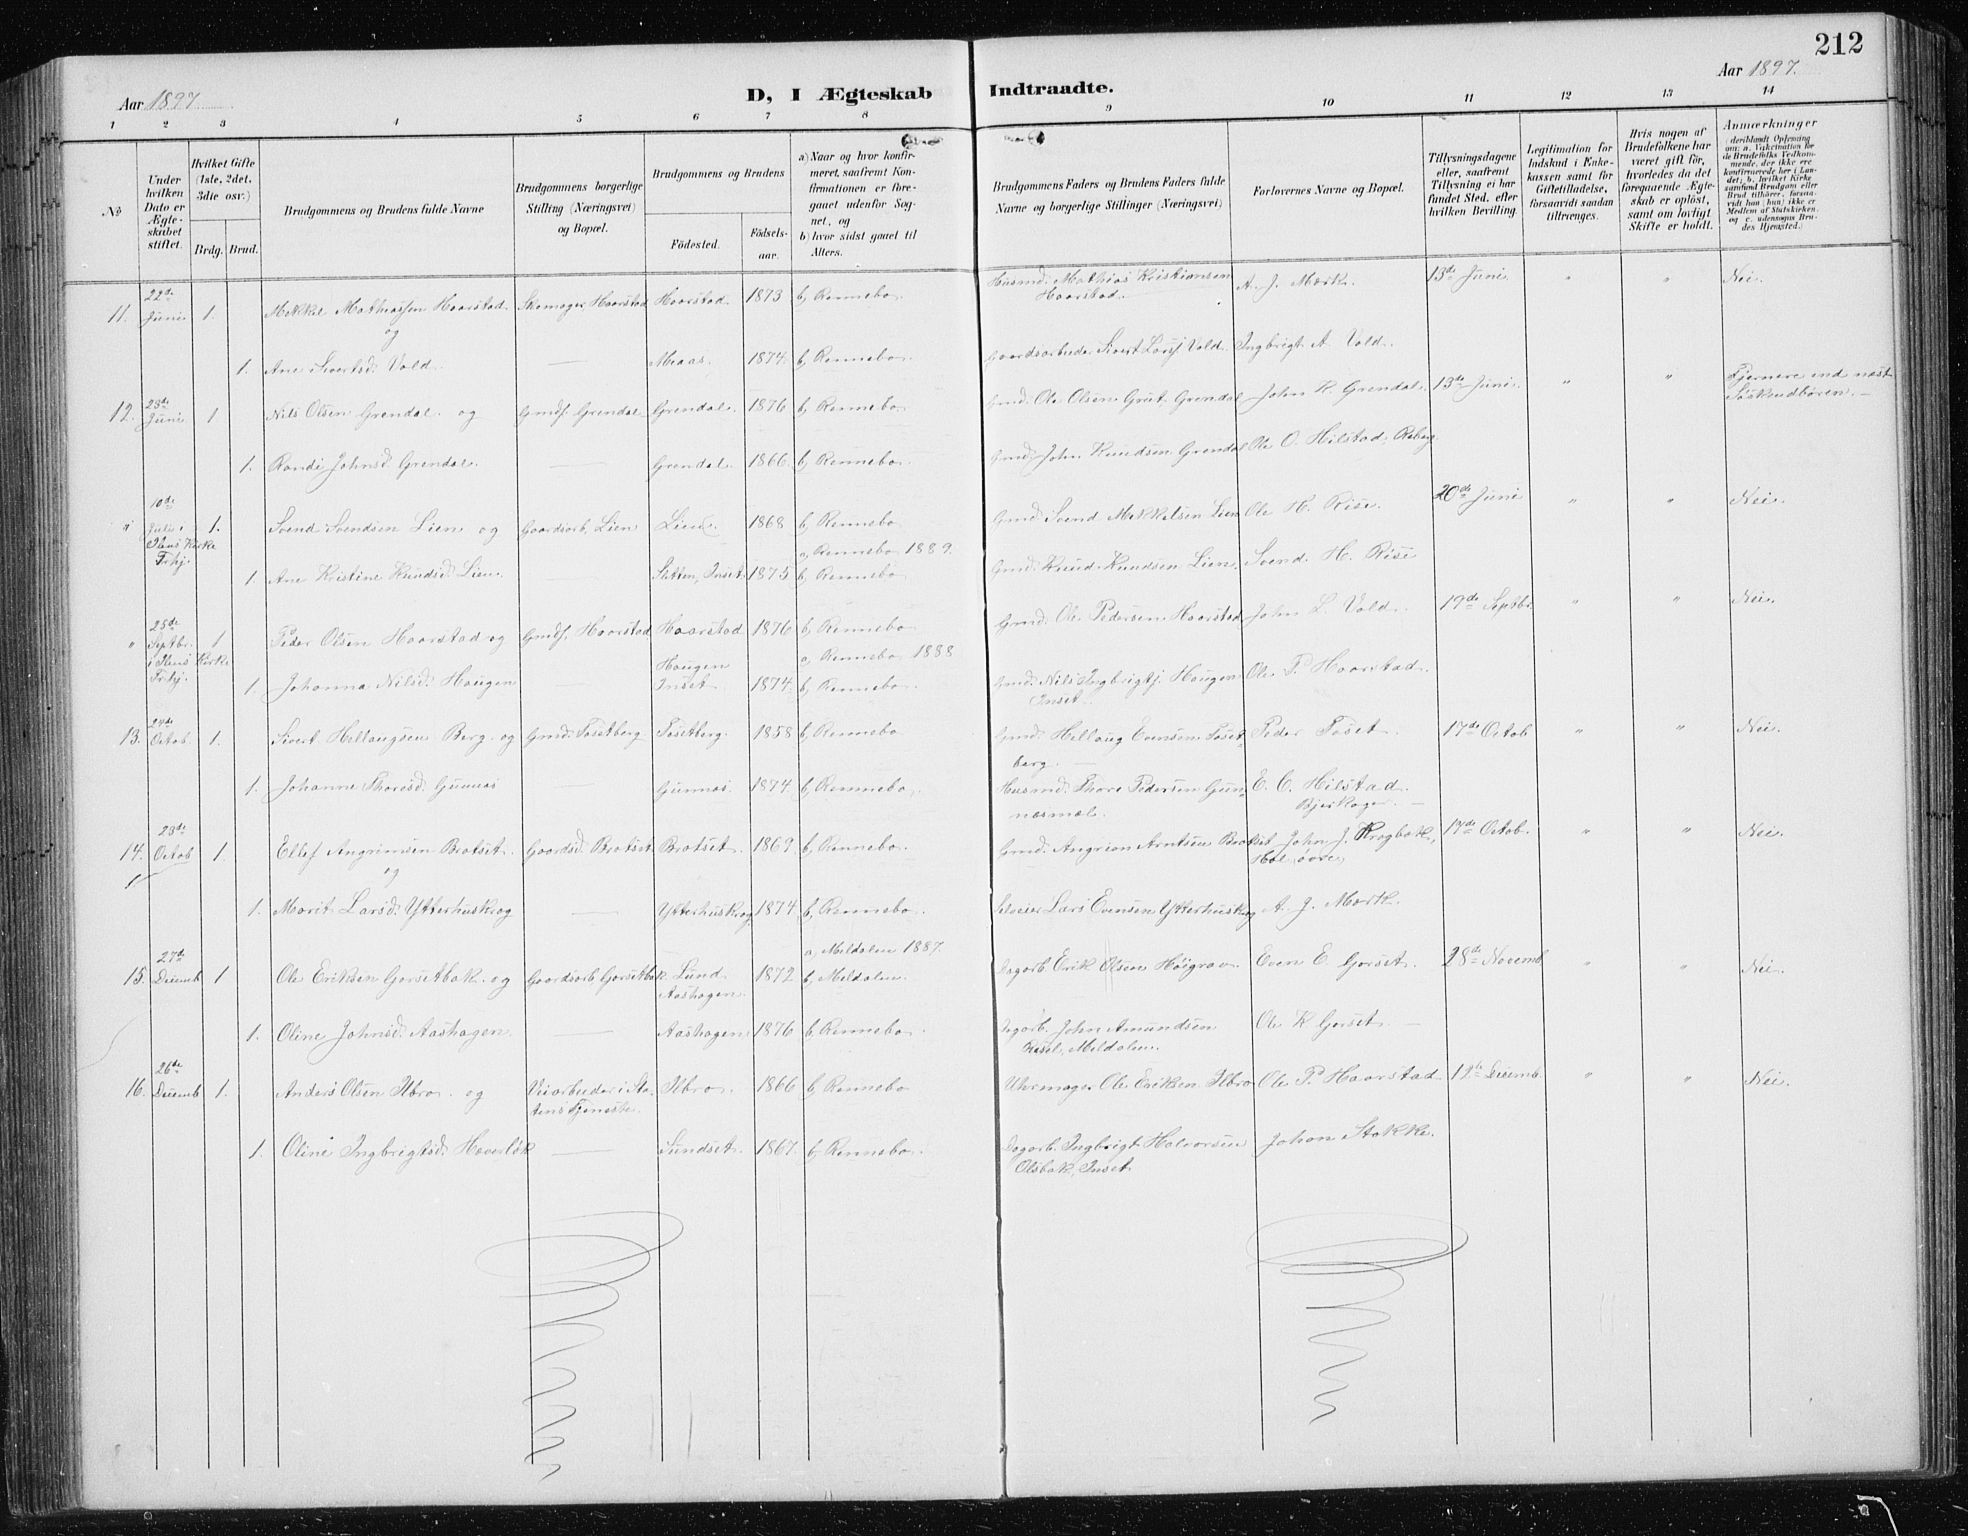 212
Aar 1897.
D, I Ægteskab Indtraadte.
Aar 1897.
1 2 3 4 5 6 7 8 9 10 11 12 13 14
№
Under hvilken Dato er Ægteskabet stiftet.
Hvilket Gifte (1ste, 2det, 3die osv.)
Brdg. Brud.
Brudgommens og Brudens fulde Navne
Brudgommens borgerlige Stilling (Næringsvei) og Bopæl.
Brudgommens og Brudens
Födested.
Födselsaar.
a) Naar og hvor konfirmeret, saafremt Konfirmationen er foregaaet udenfor Sognet, og
b) hvor sidst gaaet til Alters.
Brudgommens Faders og Brudens Faders fulde Navne og borgerlige Stillinger (Næringsvei)
Forlovernes Navne og Bopæl.
Tillysningsdagene eller, saafremt Tillysning ei har fundet Sted, efter hvilken Bevilling.
Legitimation for Indskud i Enkekassen samt for Giftetilladelse, forsaavidt saadan tiltrænges.
Hvis nogen af Brudefolkene har været gift før, hvorledes da det foregaaende Ægteskab er opløst, samt om lovligt Skifte er holdt.
Anmærkninger
11. 22de Juni 1. Mekkel Mathiassen Haarstad og Skomager, Haarstad Haarstad 1873 b, Rennebo Husmd. Mathias Kristiansen Haarstad. A. J. Mærk. 13de Juni " " Nei.
1. Ane Sivertsd. Vold. — Meaas. 1874. b, Rennebo. Gaardsarbeider Sivert Larsj Vold. Ingbrigt A. Vold.
12. 23de Juni 1 Nils Olsen Grendal. og Gmdf. Grendal Grendal. 1876 b, Rennebo Gmd. Ole Olsen Grut Grendal John K. Grendal. 13de Juni. " " Fjernere end næst Søskendbören. —
1. Randi Johnsd. Grendal. — Grendal. 1866. b, Rennebo. Gmd. John Knudsen Grendal Ole O. Hilstad,
" 10de Juli i Ilens Kirke Trhj. 1. Svend Svendsen Lien og Gaardsarb. Lien Lien. 1868 b, Rennebo Gmd. Svend Mekkelsen Lien Ole H. Rise. 20de Juni " " Nei.
1 Ane Kristine Knudsd. Lien. — Sletten, Inset. 1875 a, Rennebo 1889. b, Rennebo Gmd. Knud Knudsen Lien. Svend H. Rise
" 25de Septbr. i Ilens Kirke Trhj. 1 Peder Olsen Haarstad og Gmdf. Haarstad Haarstad 1876 b, Rennebo Gmd. Ole Pedersen Haarstad John L. Vold. 19de Septbr. " " Nei.
1. Johanna Nilsd. Haugen — Haugen Inset. 1874. a, Rennebo 1888 b, Rennebo. Gmd. Nils Ingbrigtj. Haugen Inset. Ole P. Haarstad.
13. 24de Octob. 1. Sivert Hellaugsen Berg. og Gmd. Tosetberg Tosetberg. 1858 b, Rennebo Gmd. Hellaug Evensen Tosetberg. — Peder Toset. 17de Octob " " Nei.
1. Johanne Thoresd. Gunnes — Gunnes. 1874. b, Rennebo. Husmd. Thore Pedersen Gunnesmæl. E. O. Hilstad. Bjerkager. —
14. 28de Octob 1. Ellef Angrimsen Brotset. og Gaardsd. Brotset Brotset. 1869. b, Rennebo. Gmd. Angrim Arntsen Brotset John J. Krogbak, Hol, övre, 17de Octob. " " Nei.
1. Marit Larsd. Ytterhuskrog — Ytterhuskrog 1874 b, Rennebo. Selveier Lars Evensen Ytterhuskrog A. J. Mærk.
15. 27de Decemb 1 Ole Eriksen Gorsetbak. og Gaardsarb. Gorsetbak Lund Aashagen. 1872 a, Meldalen 1887. b, Meldalen. Dagarb. Erik Olsen Höigrav. Even E. Gorset. 28de Novemb " " Nei.
1. Oline Johnsd. Aashagen. — Aashagen. 1876 b, Rennebo. Dagarb. John Amundsen Resel, Meldalen. Ole K Gorset —
16. 26de Decemb 1. Anders Olsen Ilbro. og Veiarbeider i Statens Tjeneste. Ilbro. 1866 b, Rennebo Uhrmager Ole Eriksen Ilbro Ole P. Haarstad 12te Decemb. " " Nei.
1. Oline Ingbrigtsd. Hæverlök — Sundset. 1867. b, Rennebo. Dagarb. Ingbrigt Halvorsen Olsbak, Inset Johan Stokke.